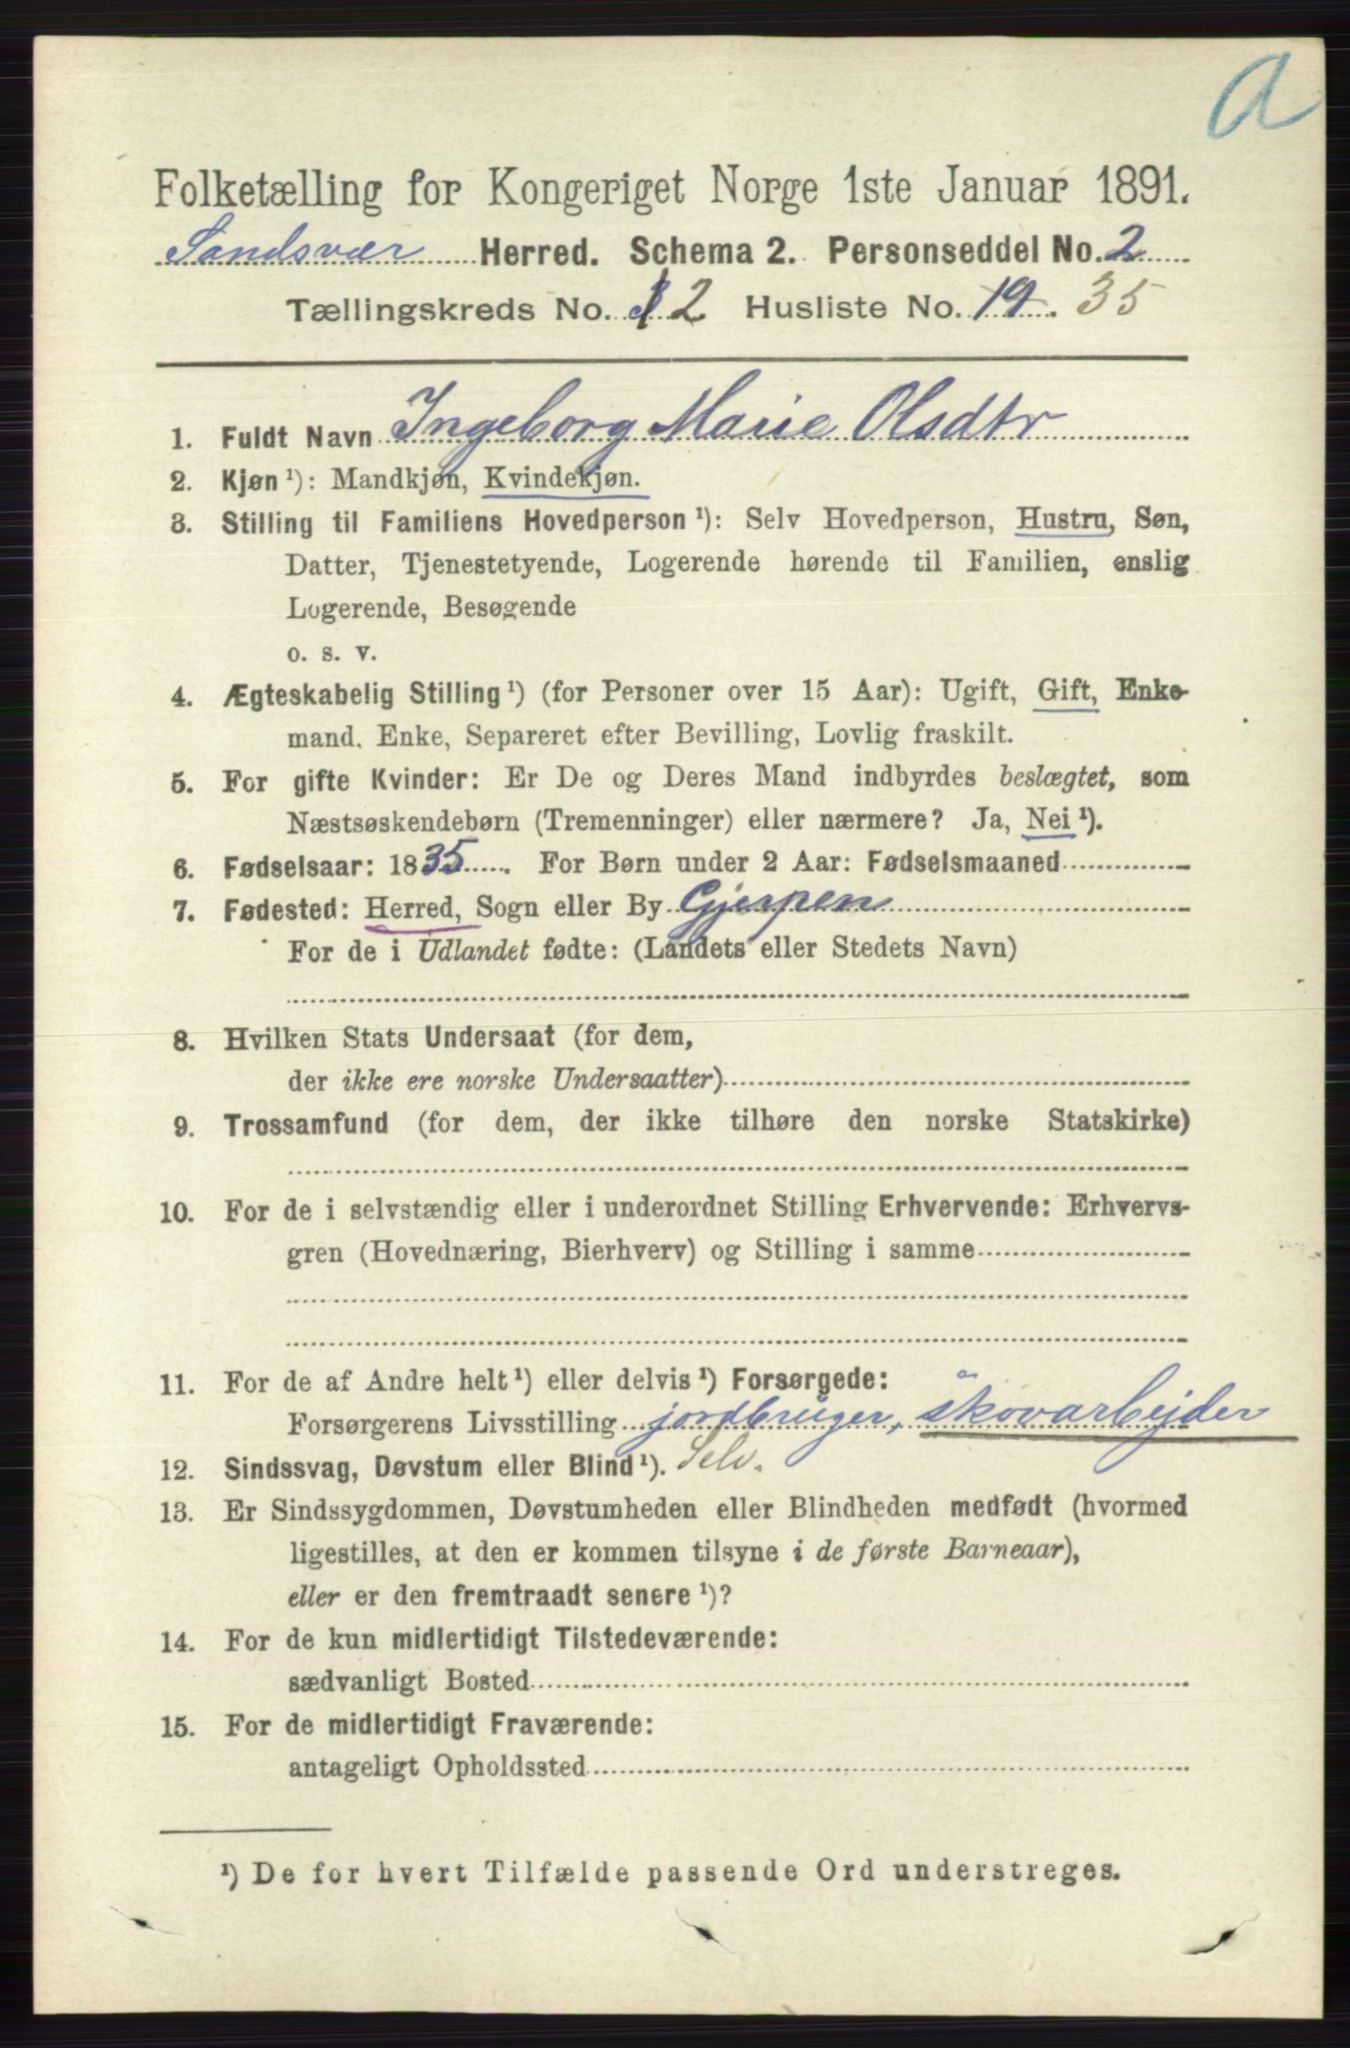 a
Folketælling for Kongeriget Norge 1ste Januar 1891.
Sandsvær Herred. Schema 2. Personseddel No. 2
Tællingskreds No. 2 Husliste No. 19. 35
1. Fuldt Navn Ingeborg Marie Olsdtr
2. Kjøn ¹): Mandkjøn, Kvindekjøn.
3. Stilling til Familiens Hovedperson ¹): Selv Hovedperson, Hustru, Søn,
Datter, Tjenestetyende, Logerende hørende til Familien, enslig
Logerende, Besøgende
o. s. v.
4. Ægteskabelig Stilling ¹) (for Personer over 15 Aar): Ugift, Gift, Enke-
mand, Enke, Separeret efter Bevilling, Lovlig fraskilt.
5. For gifte Kvinder: Er De og Deres Mand indbyrdes beslægtet, som
Næstsøskendebørn (Tremenninger) eller nærmere? Ja, Nei ¹).
6. Fødselsaar: 1835. For Børn under 2 Aar: Fødselsmaaned
7. Fødested: Herred, Sogn eller By Gjerpen
For de i Udlandet fødte: (Landets eller Stedets Navn)
8. Hvilken Stats Undersaat (for dem,
der ikke ere norske Undersaatter)
9. Trossamfund (for dem, der ikke tilhøre den norske Statskirke)
10. For de i selvstændig eller i underordnet Stilling Erhvervende: Erhvervs-
gren (Hovednæring, Bierhverv) og Stilling i samme
11. For de af Andre helt ¹) eller delvis ¹) Forsørgede:
Forsørgerens Livsstilling jordbruger, skovarbejder
12. Sindssvag, Døvstum eller Blind ¹). Selv.
13. Er Sindssygdommen, Døvstumheden eller Blindheden medfødt (hvormed
ligestilles, at den er kommen tilsyne i de første Barneaar),
eller er den fremtraadt senere ¹)?
14. For de kun midlertidigt Tilstedeværende:
sædvanligt Bosted
15. For de midlertidigt Fraværende:
antageligt Opholdssted
¹) De for hvert Tilfælde passende Ord understreges.